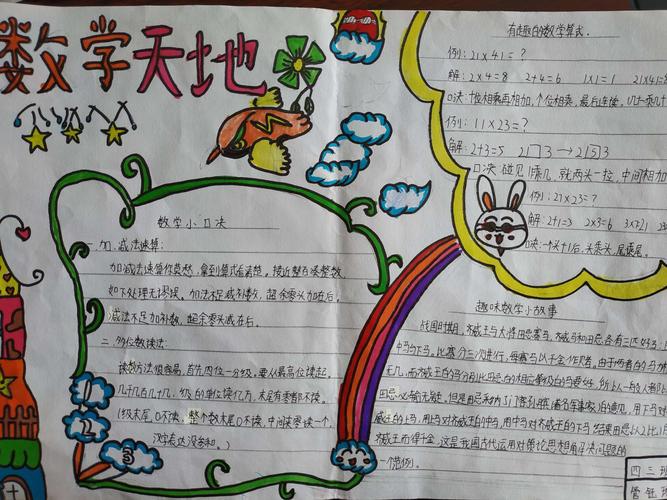 数学天地
数学小口决
一. 加、减法速算:
加减法速算你莫愁，拿到算式看清楚，接近整百凑整数，
如下处理无谬误。加法不足减补数，超余零头加在后，
减法不足加补数，超余零头减在后。
二. 多位数读法:
读数方法很容易，首先四位一分级，要从最高位读起，
几千几百几十几，级的单位读亿万，末尾有零都不读，
(级末尾0不读，整个数末尾0不读，中间夹零读一个，
汉字表达没参和。)
1
2
3
有趣的数学算式.
例: 21×41=?
解: 2×4=8 2+4=6 1×1=1 21×41=
口决: 十位相乘再相加，个位相乘，最后连续，几十乘几十
例: 11×23=?
解: 2+3=5 2□3→2⑤3
口决 碰见1乘几，就两头一拉，中间相加
例: 21×23=?
解: 2+1=3 2×3=6 3×7=21
口决: 一头+1后，头乘头，尾乘尾。
趣味数学小故事
战国时期，齐威王与大将田忌赛马，齐威王和田忌各有三匹好马:
中马与下马，比赛分三次进行，每赛马以千金作赌，由于两者的马力
无几，而齐威王的马分别比田忌的相应等级的马要好，所以一般人都以为
田忌必输无疑，但是田忌采纳了门客孙膑(著名军事家)的意见，用下马对齐
威王的上马，用上马对齐威王的中马，用中马对齐威王的下马，结果田忌以2比1
齐威王而得千金，这是我国古代运用对策论思想解决问题的
一个范例。
四 三班
管